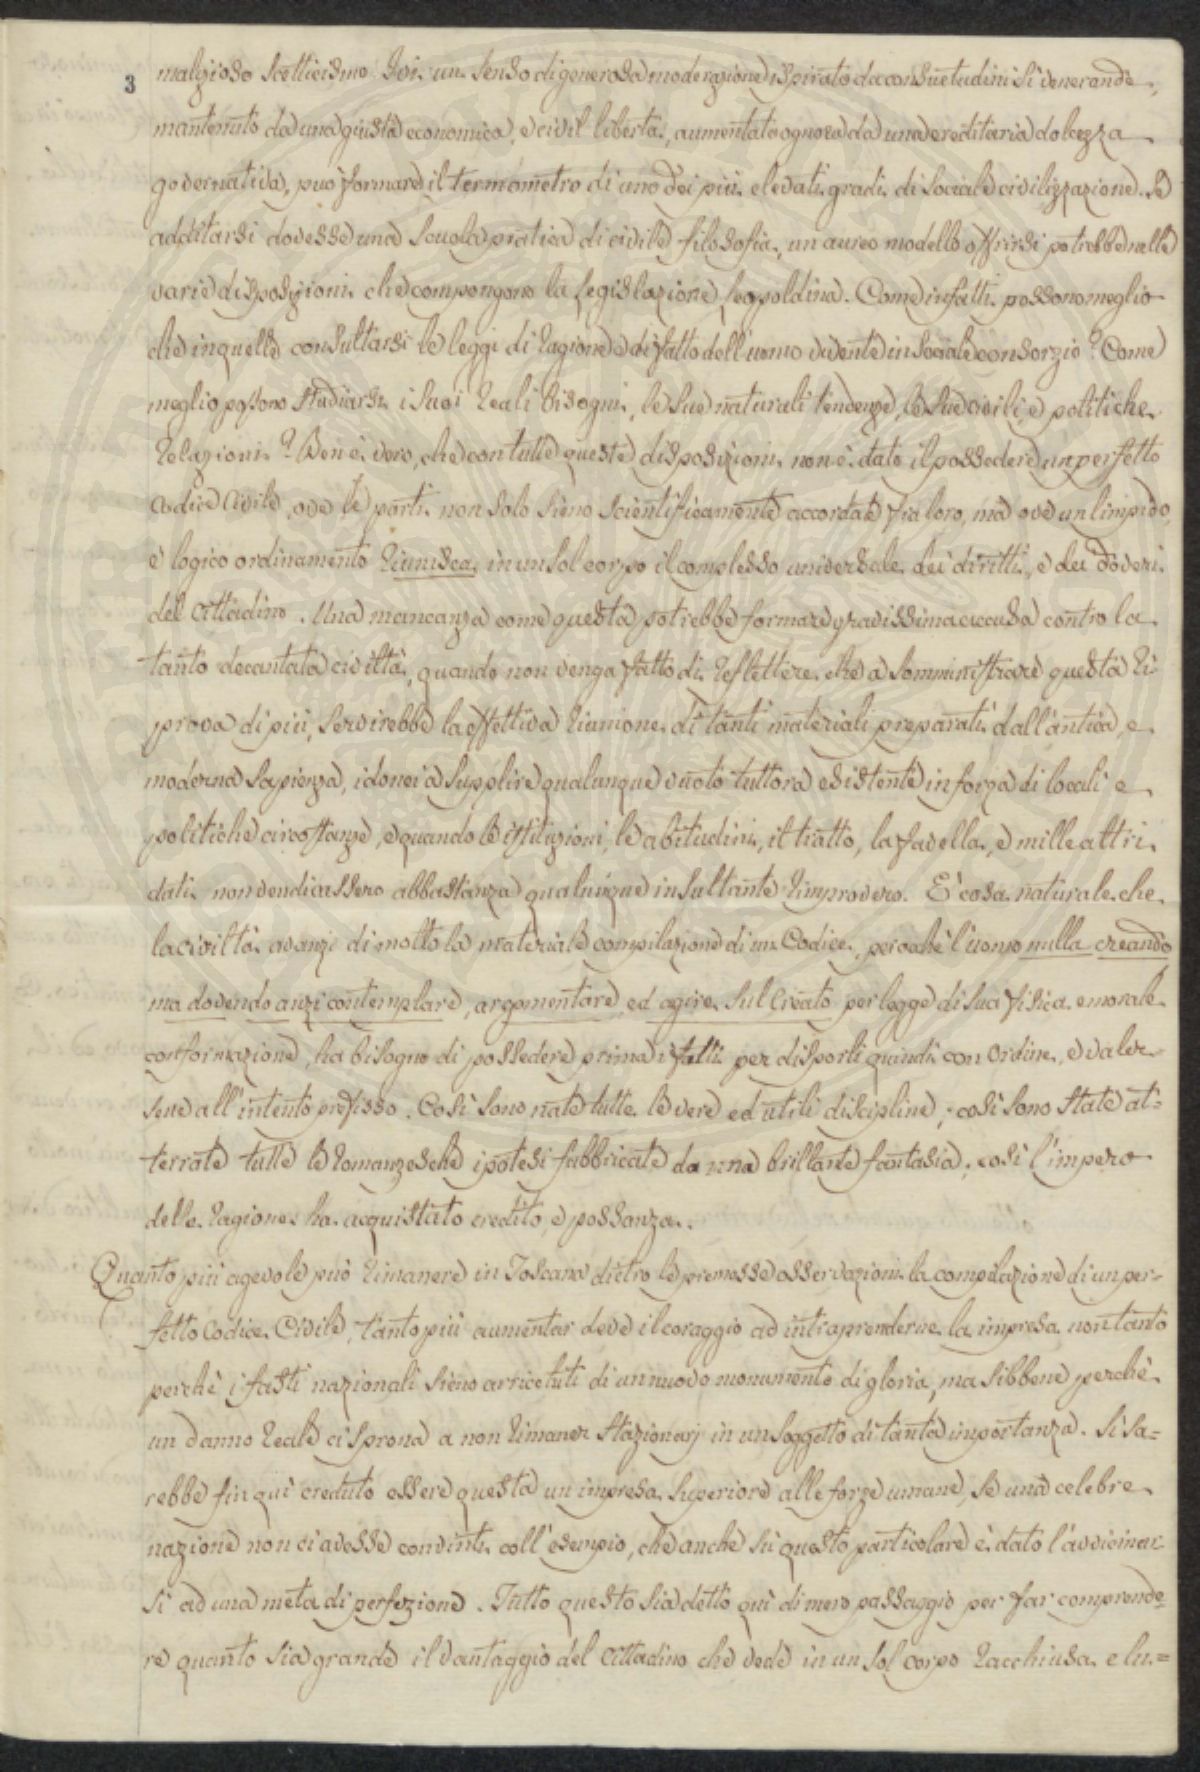 3
malizioso Scetticismo. Ivi un Senso di generosa moderazione ispirato da consuetudini sì venerande,
mantenuto da una giusta economica, e civil libertà, aumentato ognora da una ereditaria dolcezza
governativa, può formare il termometro di uno dei più elevati gradi di Sociale civilizzazione. Se
additarsi dovesse una Scuola pratica di civile filosofia, un aureo modello offrirsi potrebbe nelle
varie disposizioni che compongono la Legislazione Leopoldina. Come infatti possono meglio
che in quelle consultarsi le leggi di ragione e di fatto dell'uomo vivente in Sociale consorzio? Come
meglio possono Studiarsi i Suoi reali bisogni, le Sue naturali tendenze, le Sue civili, e politiche
relazioni? Ben è vero, che con tutte queste disposizioni non è dato il possedere un perfetto
Codice Civile, ove le parti non solo Sieno Scientificamente accordate fra loro, ma ove un limpido,
e logico ordinamento riunisca in un Sol corpo il complesso universale dei diritti, e dei doveri
del Cittadino. Una mancanza come questa potrebbe formare gravissima accusa contro la
tanto decantata civiltà, quando non venga fatto di reflettere che a Somministrare questa ri-
prova di più, Servirebbe la effettiva riunione di tanti materiali preparati dall'antica, e
moderna Sapienza, idonei a Supplire qualunque vuoto tuttora esistente in forza di locali e
politiche circostanze, e quando le istituzioni, le abitudini, il tratto, la favella, e mille altri
dati non vendicassero abbastanza qualunque insultante rimprovero. E' cosa naturale che
la civiltà avanzi di molto la materiale compilazione di un Codice, perocchè l'uomo nulla creando
ma dovendo anzi contemplare, argomentare, ed agire Sul Creato per legge di Sua fisica e morale
conformazione, ha bisogno di possedere prima i fatti per disporli quindi con ordine, e valer-
sene all'intento prefisso. Così Sono nate tutte le vere ed utili discipline; così Sono State at=
terrate tutte le romanzesche ipotesi fabbricate da una brillante fantasia; così l'impero
della ragione ha acquistato credito, e possanza.
Quanto più agevole può rimanere in Toscana dietro le premesse osservazioni la compilazione di un per-
fetto Codice Civile, tanto più aumentar deve il coraggio ad intraprenderne la impresa non tanto
perchè i fasti nazionali Sieno arricchiti di un nuovo monumento di gloria, ma Sibbene perchè
un danno reale ci Sprona a non rimaner Stazionarj in un Soggetto di tanta importanza. Si Sa=
rebbe fin qui creduto essere questa un impresa Superiore alle forze umane, Se una celebre
nazione non ci avesse convinti coll'esempio, che anche Su questo particolare è dato l'avvicinar
Si ad una meta di perfezione. Tutto questo Sia detto quì di mero passaggio per far comprende=
re quanto Sia grande il vantaggio del Cittadino che vede in un Sol corpo racchiusa e lu.=